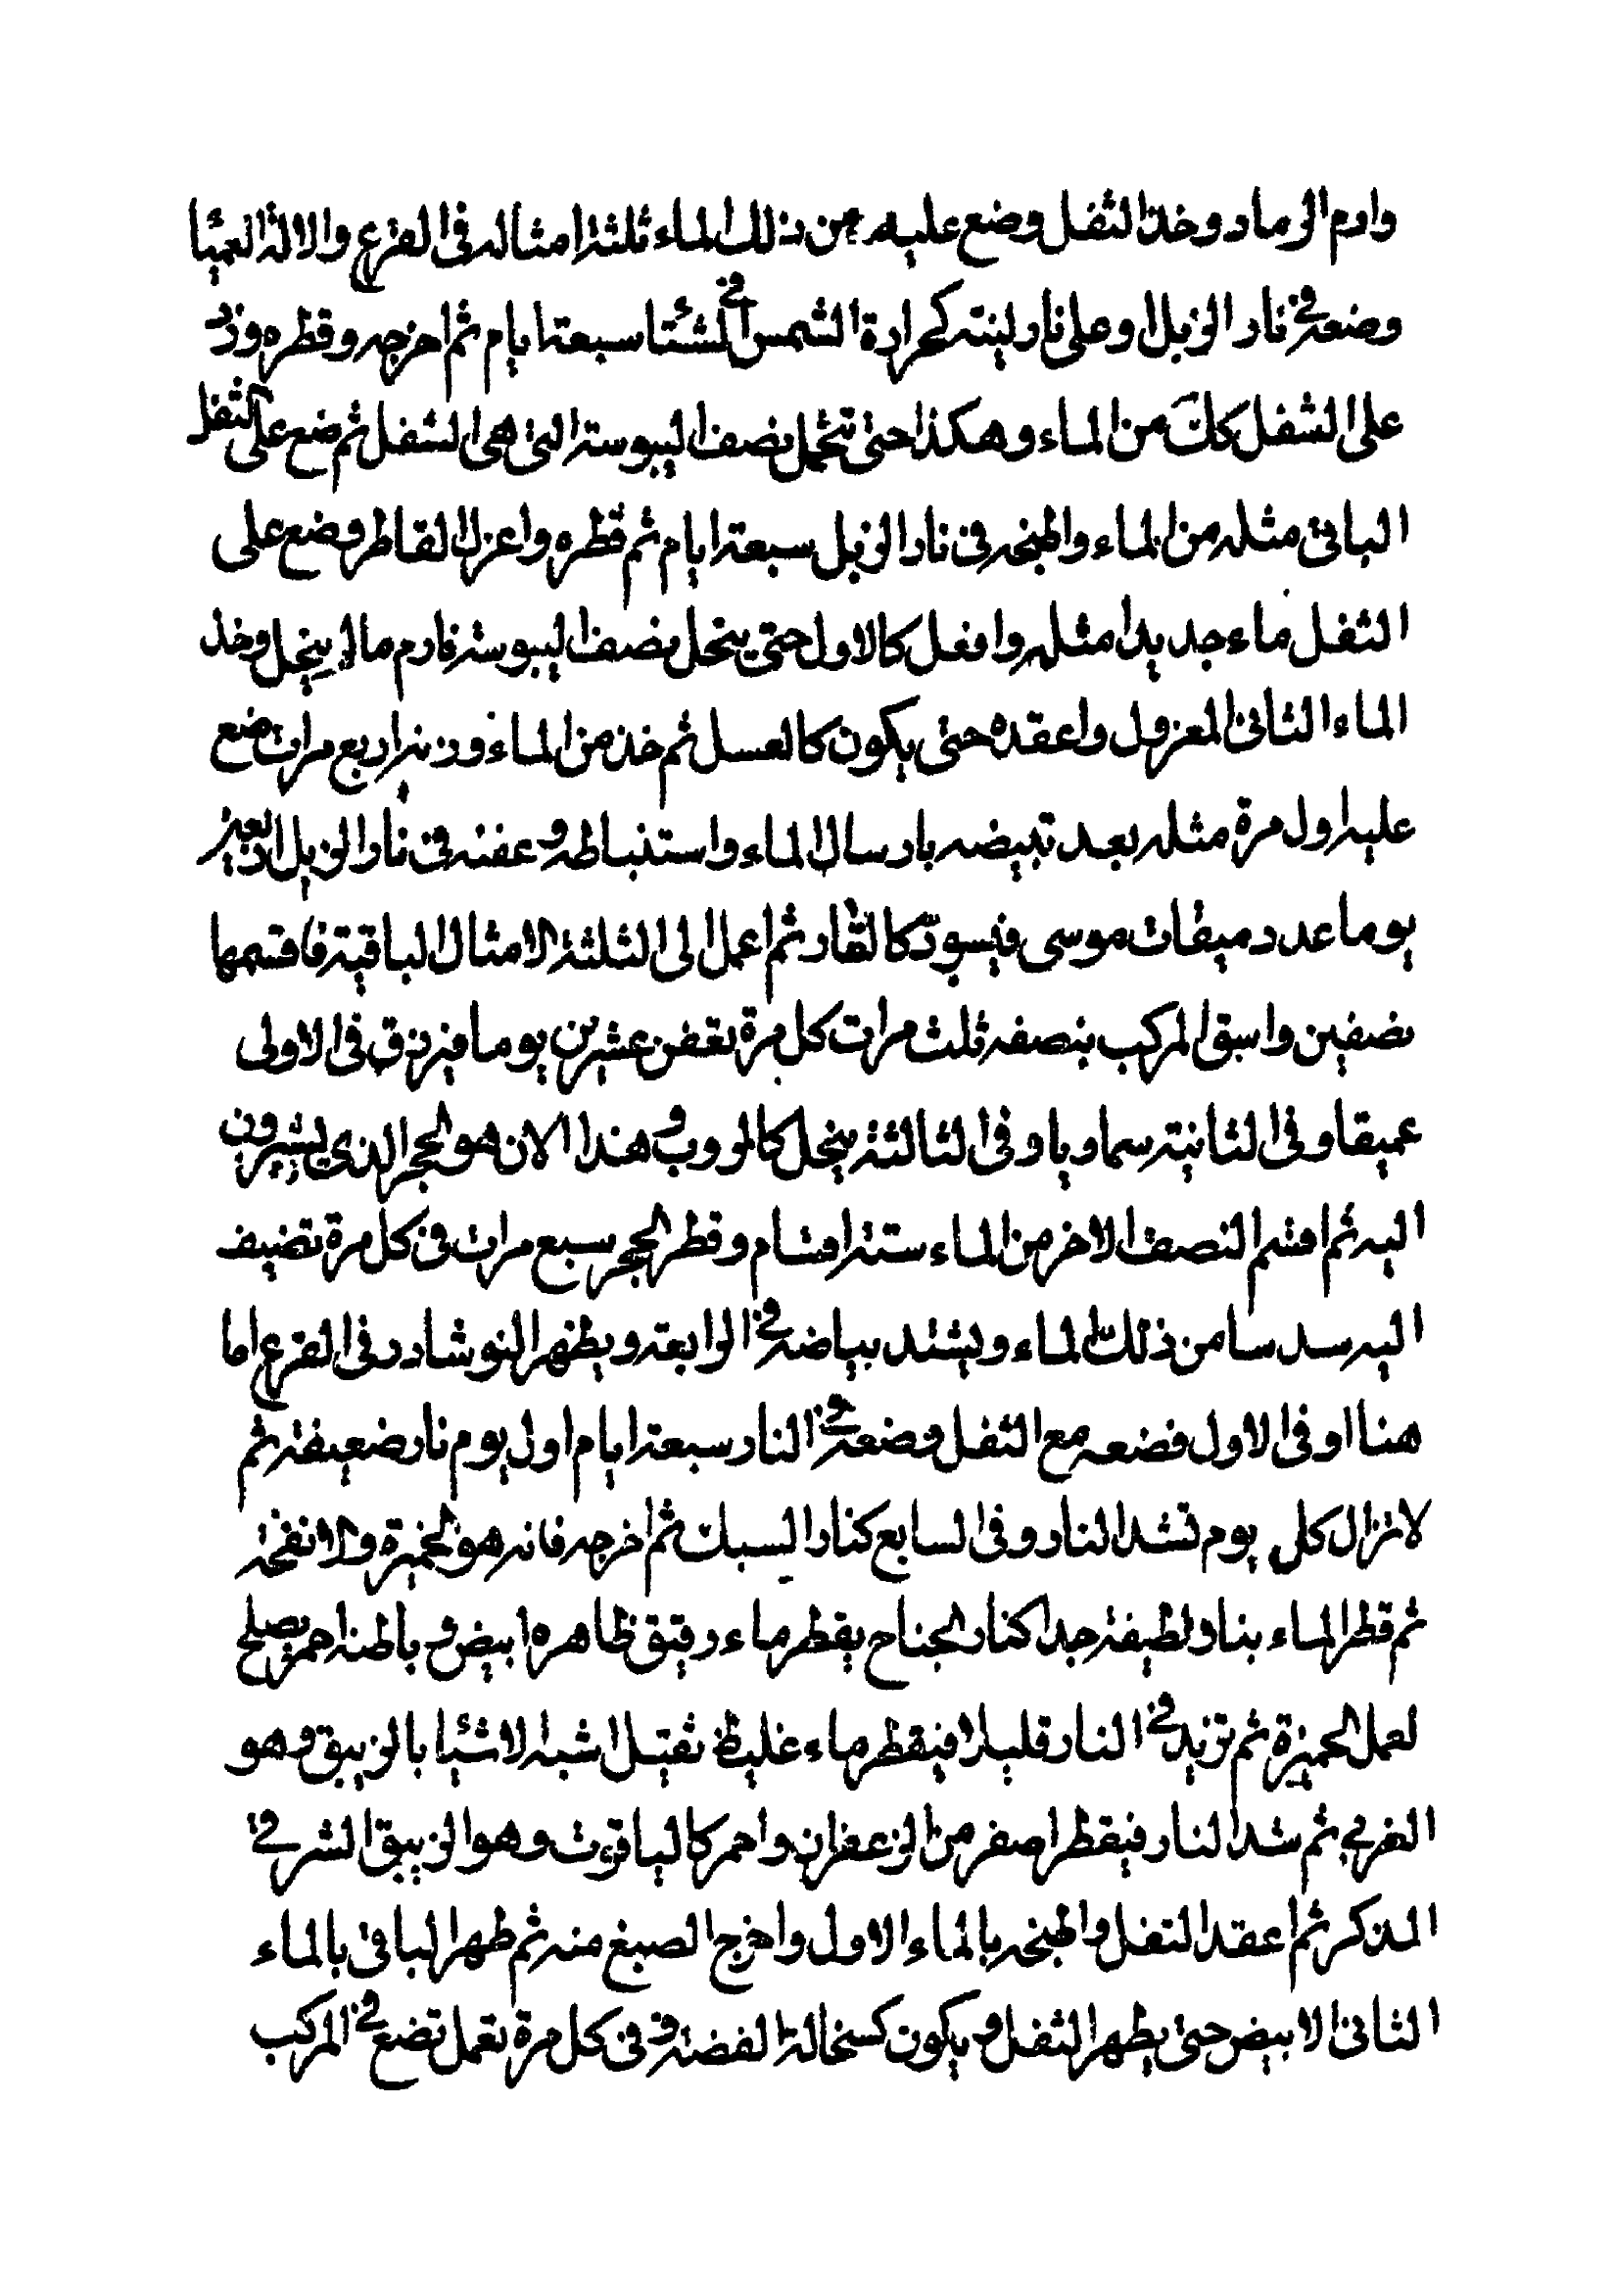 وارم الرماد وخذ الثفل وضع عليه من ذلك الماء ثلثة امثاله فى القرع والالة العميا
وضعه فى نار الزبل او على نار لينته كحرارة الشمس فى الشتا سبعة ايام ثم اخرجه وقطره وزد
على الثفل كك من الماء وهكذا حتى تنحل نصف اليبوسة التى هى الثفل ثم ضع على الثفل
الباقى مثله من الماء واطبخه فى نار الزبل سبعة ايام ثم قطره واعزل القاطر وضع على
الثفل ماء جديدا مثله وافعل كالاول حتى ينحل نصف اليبوسة فارم ما لم ينحل وخذ
الماء الثانى المعزول واعقده حتى يكون كالعسل ثم خذ من الماء وزنه اربع مرات ضع
عليه اول مرة مثله بعد تبيضه بارسال الماء واستنباطه وعفنه فى نار الزبل اربعين
يوما عدد ميقات موسى فيسود كالقار ثم اعمل الى الثلثة الامثال الباقية فاقسمها
نصفين واسق المركب بنصفه ثلث مرات كل مرة تعفن عشرين يوما فيزرق فى الاولى
عميقا وفى الثانية سماويا وفى الثالثة ينحل كالروب وهذا الان هو الحجر الذى يشيرون
اليه ثم اقسم النصف الاخر من الماء ستة اقسام وقطر الحجر سبع مرات فى كل مرة تضيف
اليه سدسا من ذلك الماء ويشتد بياضه فى الرابعة ويظهر النوشادر فى القرع اما
هنا او فى الاول فضعه مع الثفل وضعه فى النار سبعة ايام اول يوم نار ضعيفة ثم
لا تزال كل يوم تشد النار وفى السابع كنار السبك ثم اخرجه فانه هو الخميرة والانفحة
ثم قطر الماء بنار لطيفة جدا كنار الجناح يقطر ماء رقيق ظاهره ابيض وباطنه احمر يصلح
لعمل الحميرة ثم تزيد فى النار قليلا فيقطر ماء غليظ ثقيل اشبه الاشيا بالزيبق وهو
الغربى ثم شد النار فيقطر اصفر من الزعفران واحمر كالياقوت وهو الزيبق الشرقى
المذكر ثم اعقد الثفل واطبخه بالماء الاول واخرج الصبغ منه ثم طهر الباقى بالماء
الثانى الابيض حتى يطهر الثفل ويكون كسخالة الفضة وفى كل مرة تعمل تضع فى المركب